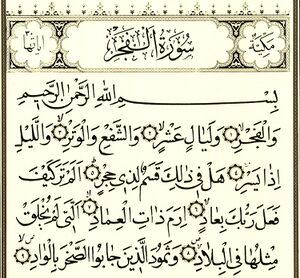 مكية سورة الفجر آياتها ٣٠
بسم الله الرحمن الرحيم
وَالْفَجْرِ ۝١ وَلَيَالٍ عَشْرٍ ۝٢ وَالشَّفْعِ وَالْوَتْرِ ۝٣ وَالَّيْلِ
إِذَا يَسْرِ ۝٤ هَلْ فِي ذَٰلِكَ قَسَمٌ لِذِي حِجْرٍ ۝٥ أَلَمْ تَرَ كَيْفَ
فَعَلَ رَبُّكَ بِعَادٍ ۝٦ إِرَمَ ذَاتِ الْعِمَادِ ۝٧ الَّتِي لَمْ يُخْلَقْ
مِثْلُهَا فِي الْبِلَادِ ۝٨ وَثَمُودَ الَّذِينَ جَابُوا الصَّخْرَ بِالْوَادِ ۝٩